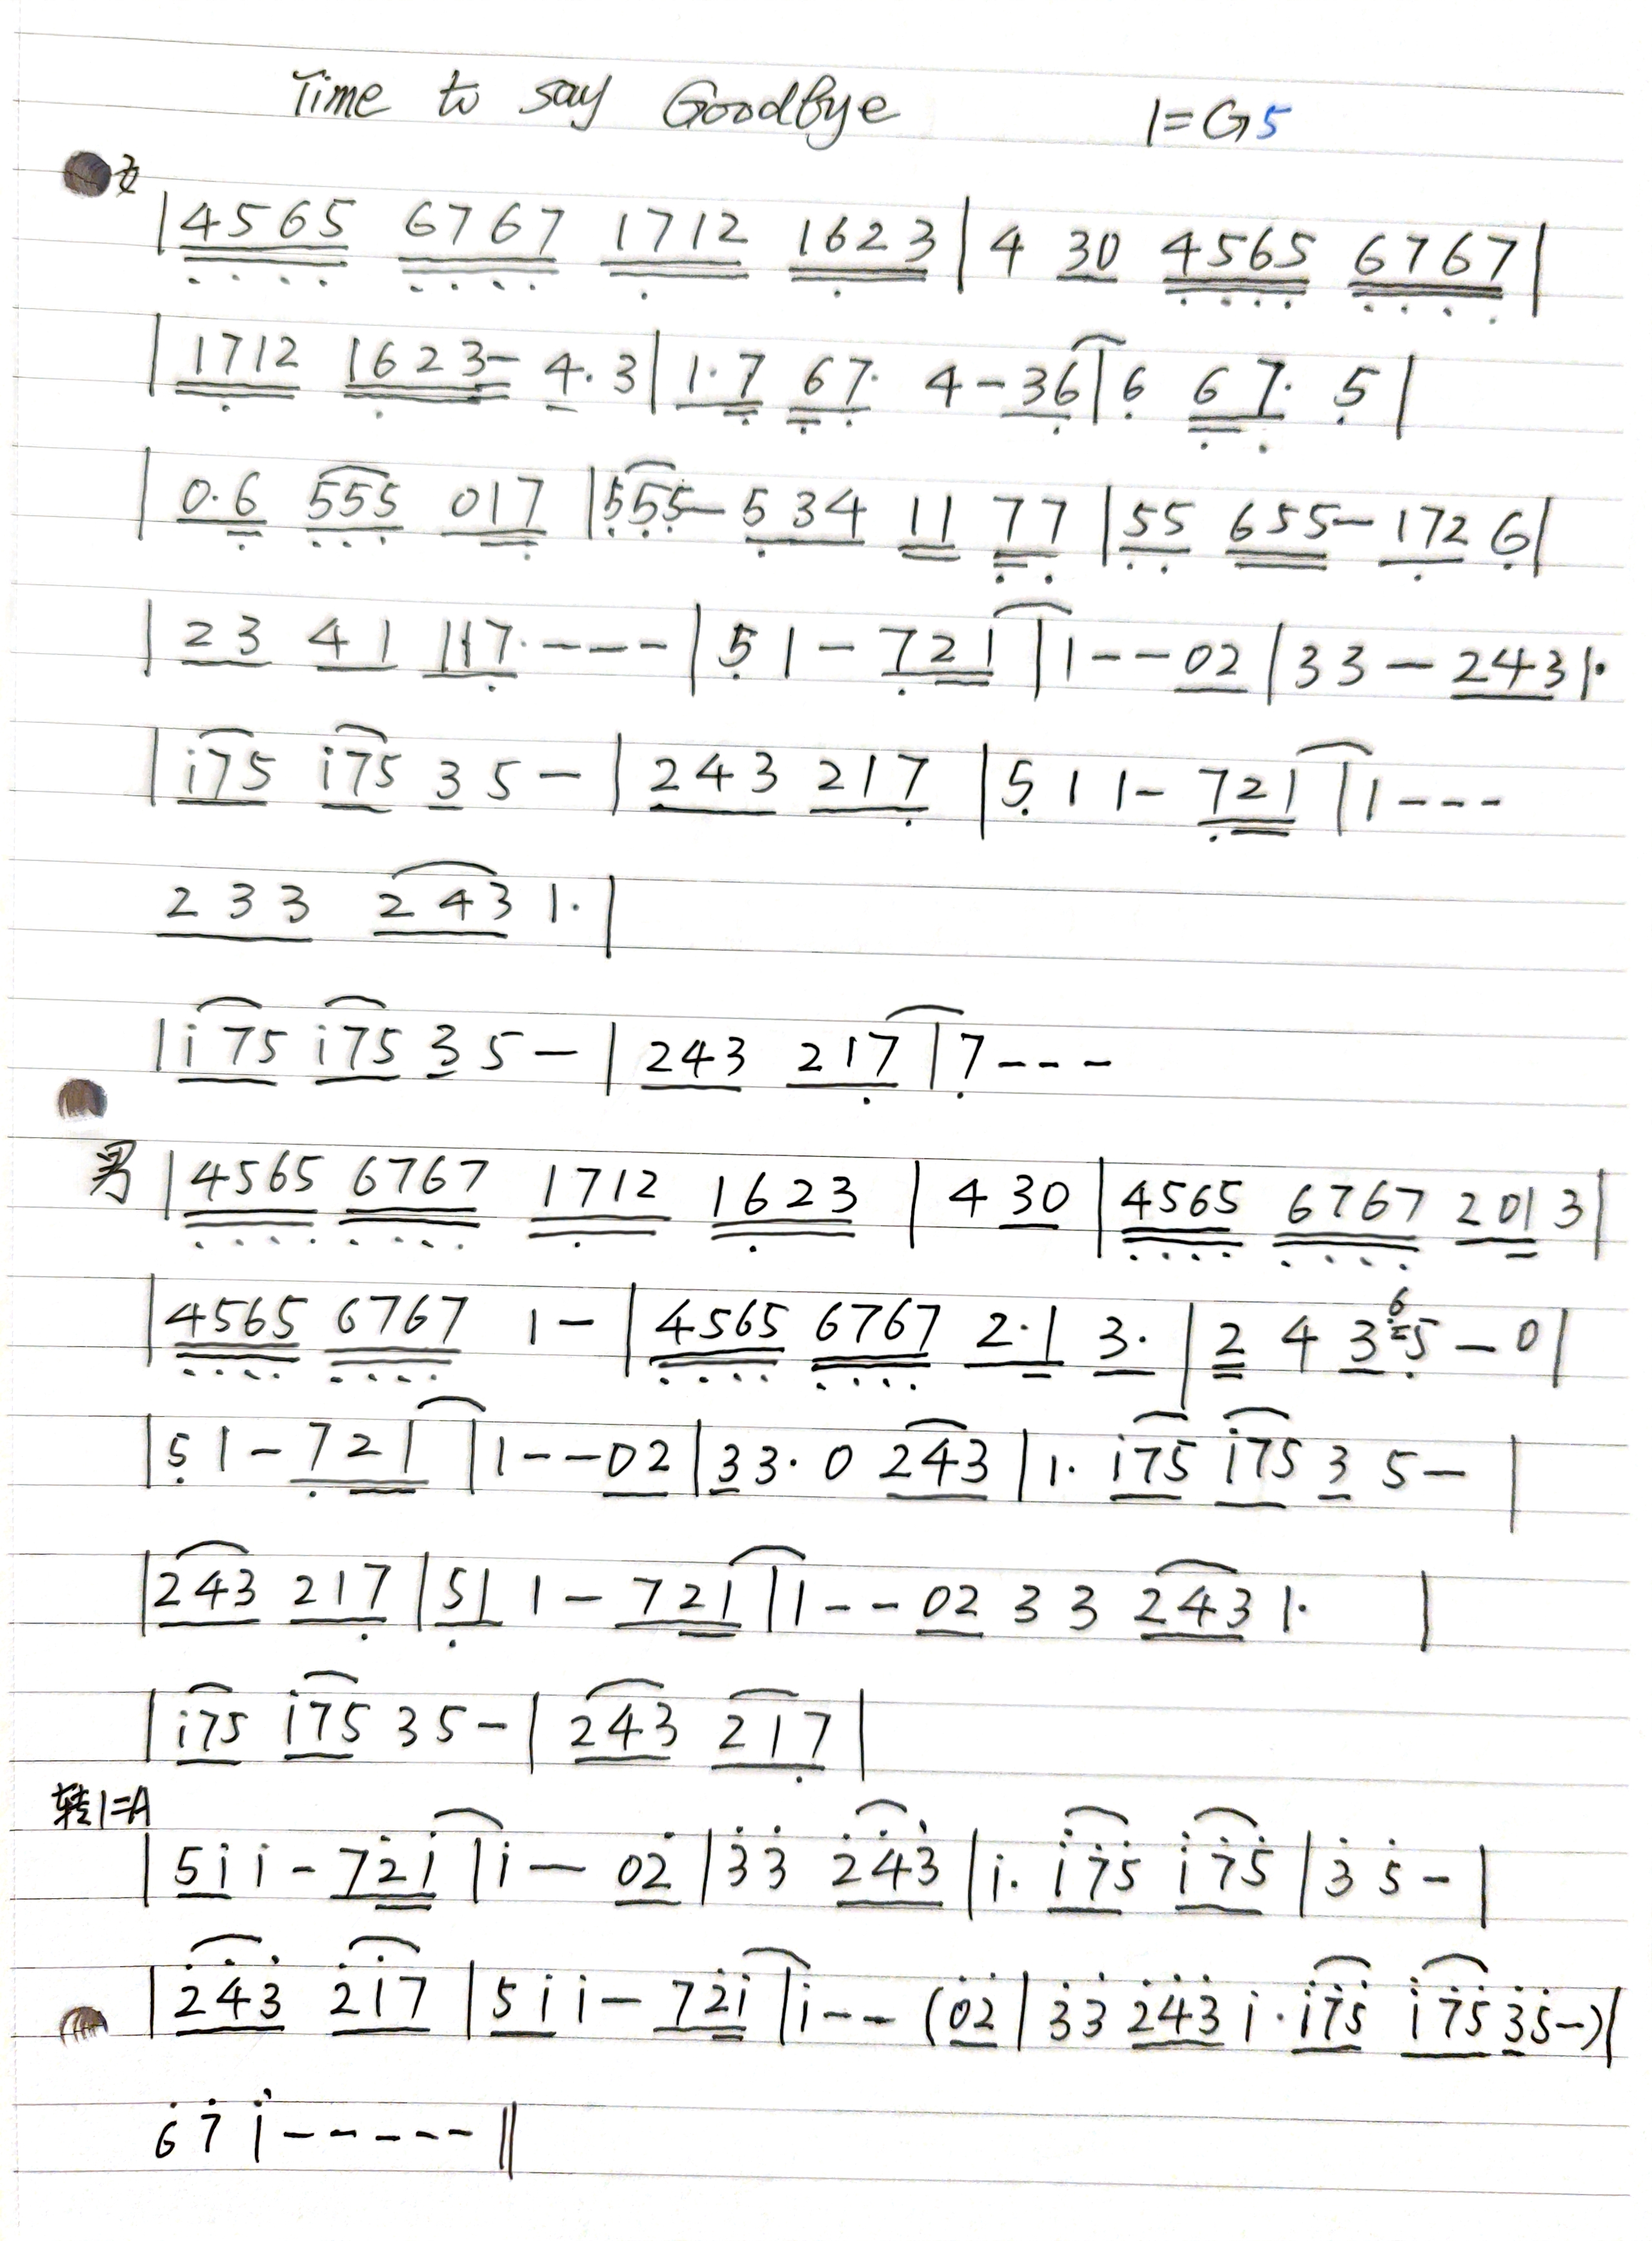 Time to say Goodbye 1=G5
女
|4565 6767 1712 1623|4 30 4565 6767|
|1712 1623- 4.3|1.7 67. 4-36|6 67. 5|
|0.6 555 017|555-534 11 77|55 655-172 6|
|23 41 117.---|51-721|1--02|33-243 1.
|i75 i75 35-|243 217|511-721|1---
233 243 1.|
|i75 i75 35-|243 217|7---
男|4565 6767 1712 1623|4 30|4565 6767 201 3|
|4565 6767 1-|4565 6767 2.1 3.|2 4 3 6 5-0|
|51-721|1--02|33.0 243|1. i75 i75 3 5-|
|243 217|51 1-721|1--02 3 3 243 1. |
|i75 i75 35-|243 217|
转1=A
|5i i-72i|i-02|33 243|i. i75 i75|35-|
|243 2i7|5i i-72i|i--(02|33 243 i.i75 i75 35-)|
6 7 i-----‖